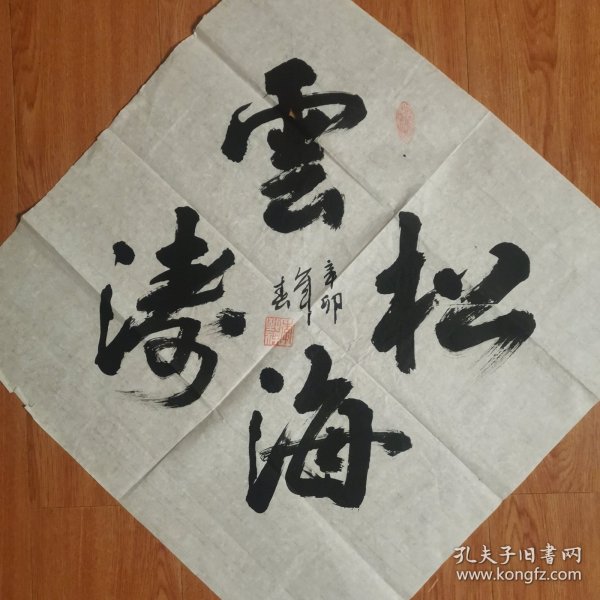 雲
海
松
濤
辛卯
年
春
孔夫子旧书网
www.kongfz.com